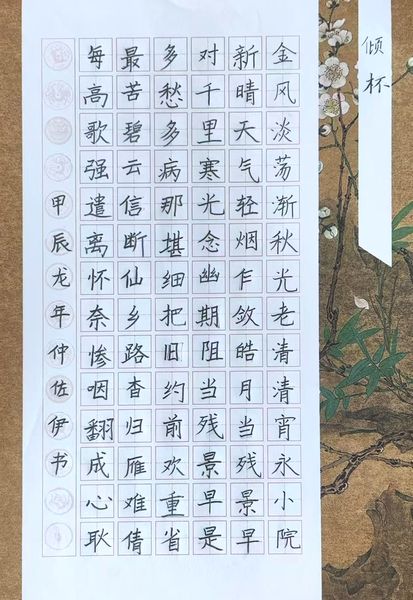 倾杯
金风淡荡渐秋光老清清宵永小院
新晴天气轻烟乍敛皓月当残景早
对千里寒光念幽期阻当残景早是
多愁多病那堪细把旧约前欢重省
最苦碧云信断仙乡路杳归雁难倩
每高歌强遣离怀奈惨咽翻成心耿
甲辰龙年仲佐伊书